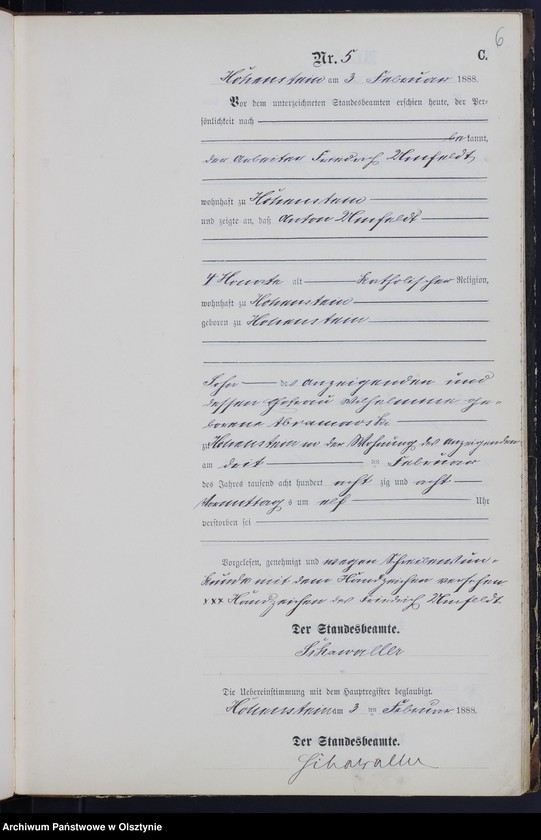 6
Nr. 5
C.
Hohenstein am 3 Februar 1888.
Vor dem unterzeichneten Standesbeamten erschien heute, der Per-
sönlichkeit nach
be kannt,
der Arbeiter Friedrich Umfeldt
wohnhaft zu Hohenstein
und zeigte an, daß Anton Umfeldt
4 Monate alt katholischer Religion,
wohnhaft zu Hohenstein
geboren zu Hohenstein
Sohn des Anzeigenden und
dessen Ehefrau Wilhelmine ge-
borene
zu Hohenstein in der Wohnung des Anzeigenden
am ten Februar
des Jahres tausend acht hundert acht zig und acht
Vormittag s um elf Uhr
verstorben sei
Vorgelesen, genehmigt und wegen Schreibensun-
kunde mit dem Handzeichen versehen
xxx Handzeichen des Friedrich Umfeldt.
Der Standesbeamte.
Die Uebereinstimmung mit dem Hauptregister beglaubigt.
Hohenstein am 3 ten Februar 1888.
Der Standesbeamte.
Archiwum Państwowe w Olsztynie